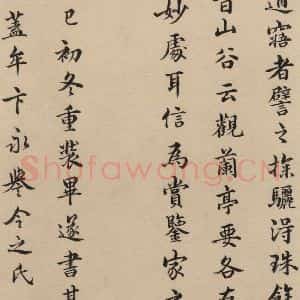 道寤者譬之探驪得珠餘
昔山谷云觀蘭亭要各存
妙處耳信為賞鑒家之
巳初冬重裝畢遂書其
蓋牟卞永譽令之氏
Shufawang.cn